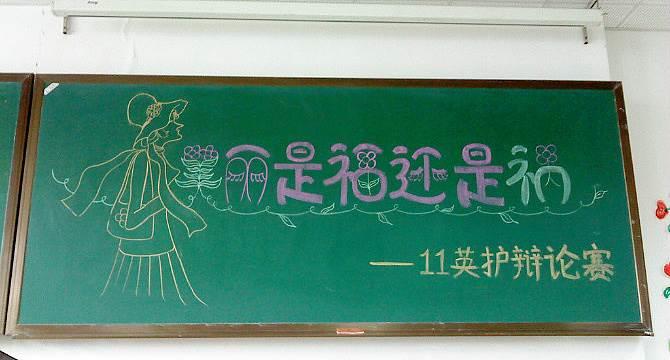 美丽是福还是祸
—11英护辩论赛